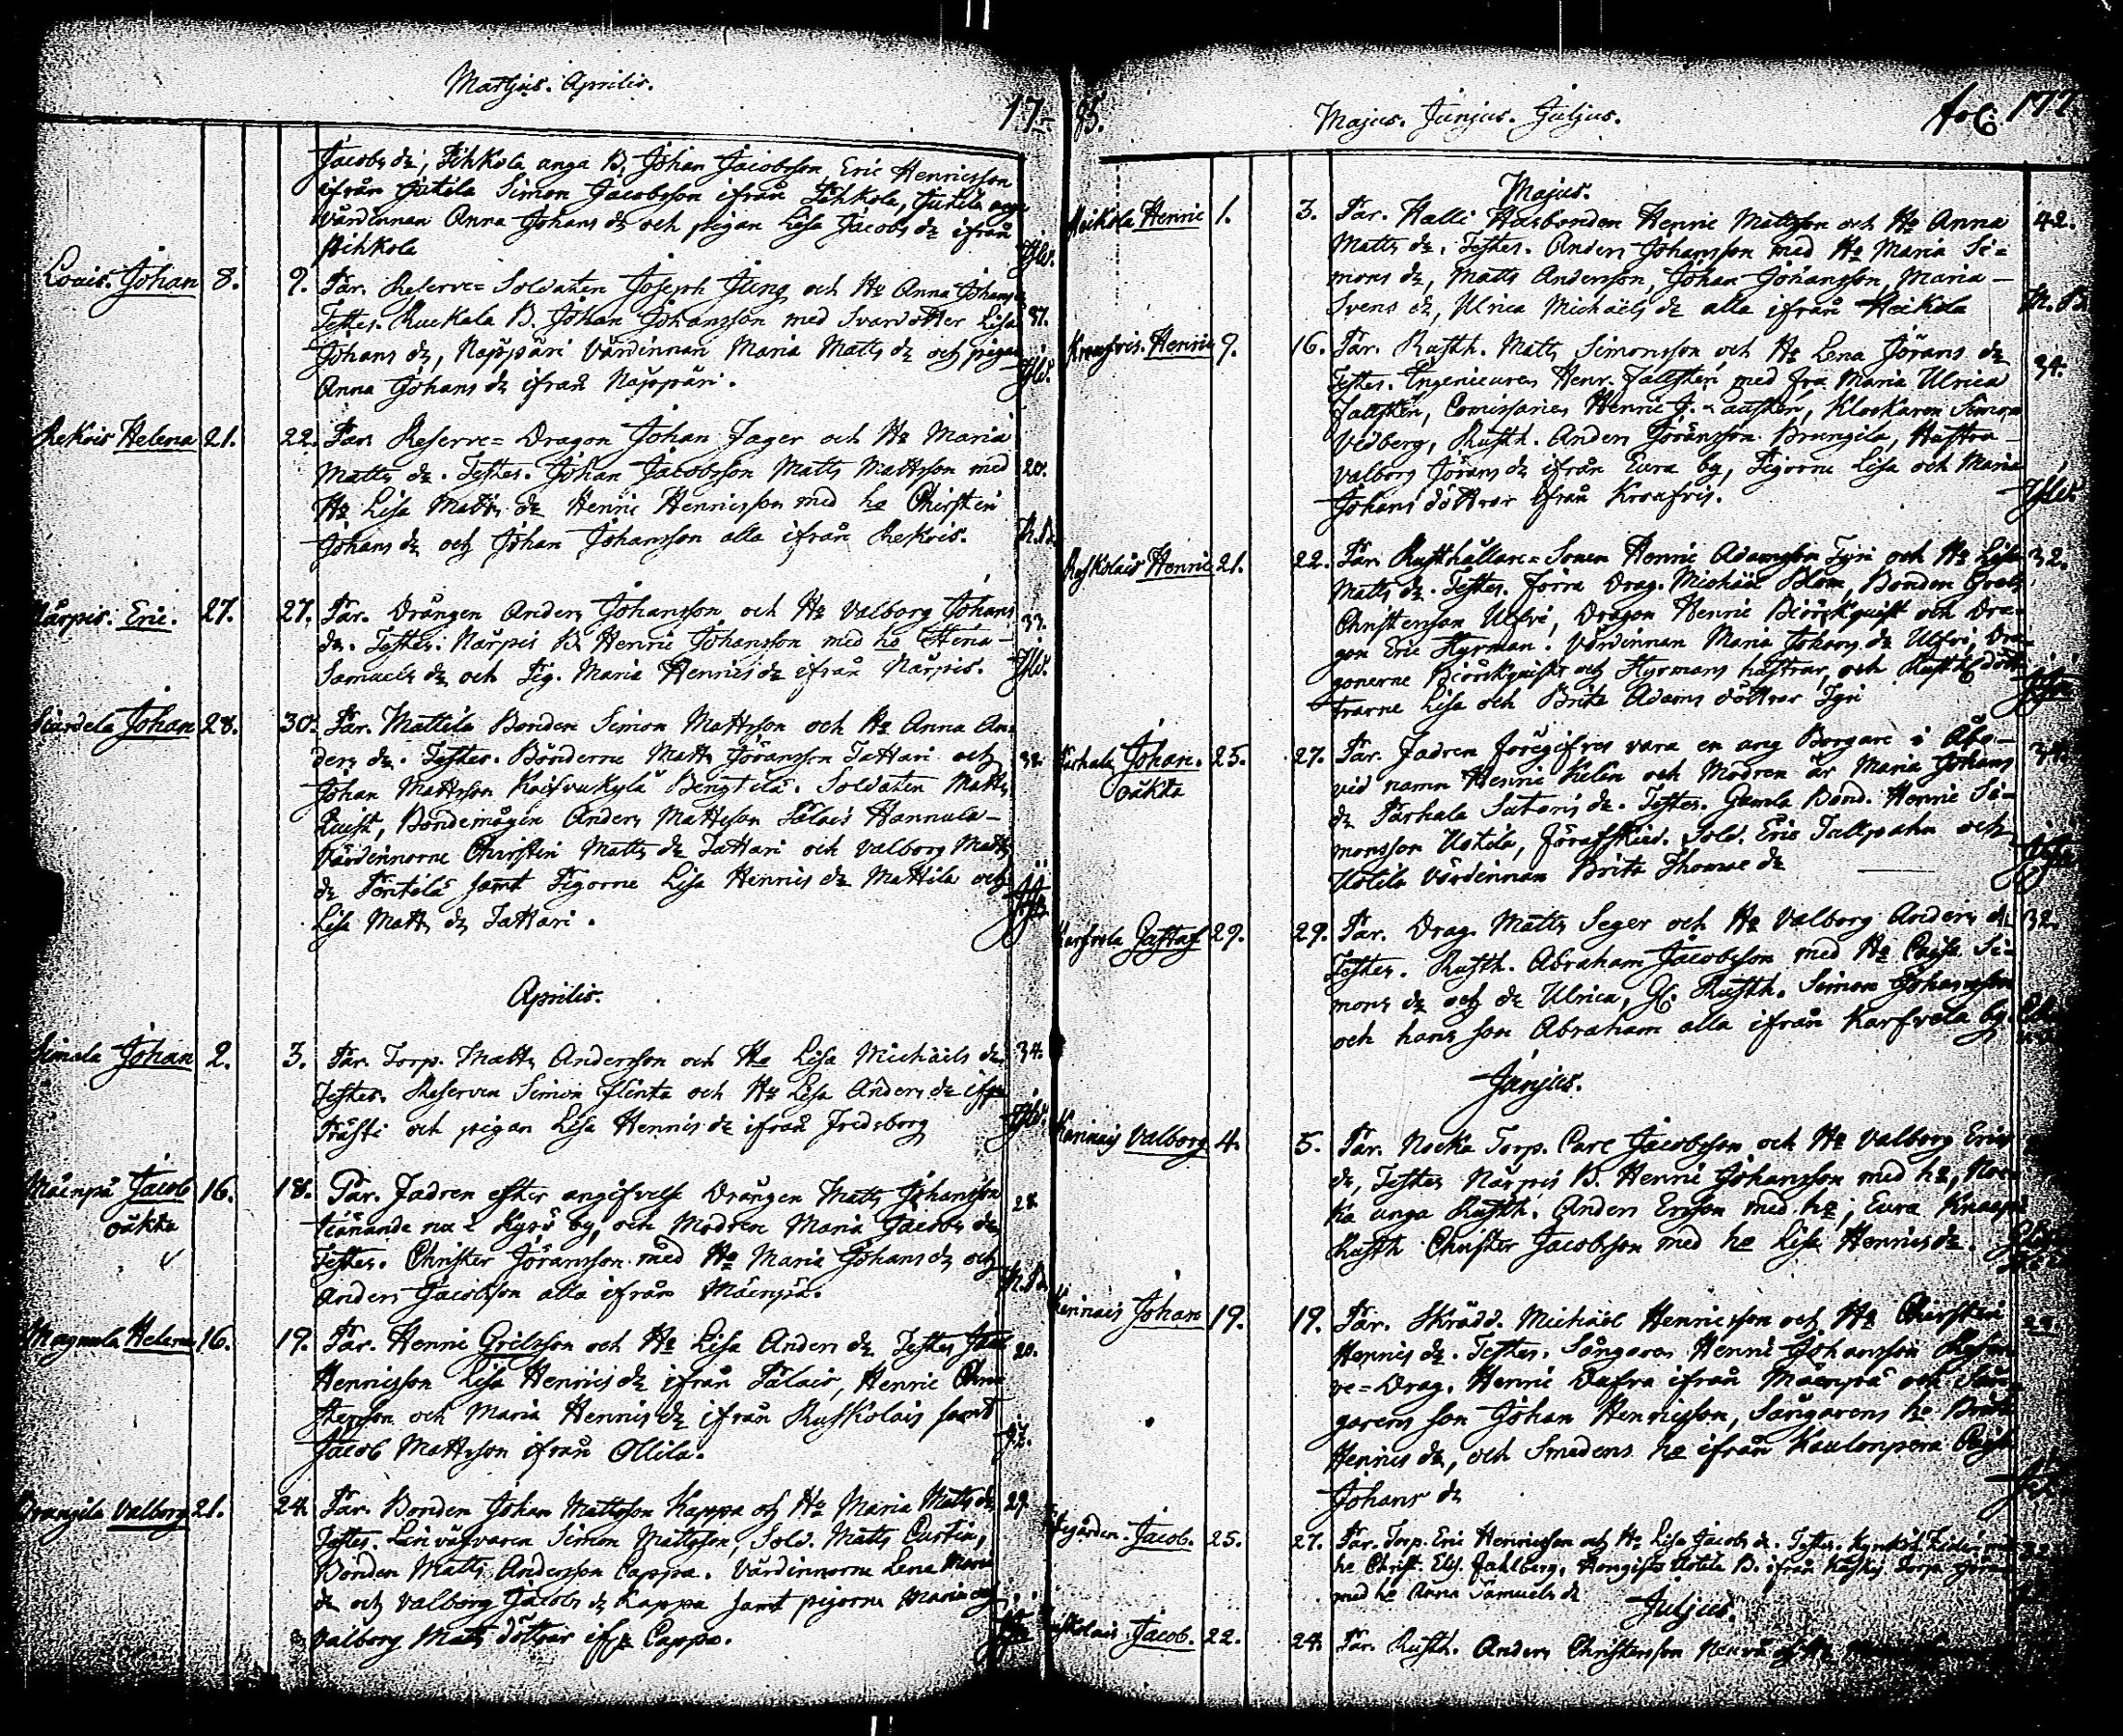 Martjus. Aprilis.
17
Jacobs dr, Pihkola unga B. Johan Jacobsson, Eric Henricsson
ifrån Jutila Simon Jacobsson ifrån Pihkola, Jutila unga
värdinnan Anna Johans dr och pigan Lisa Jacobs dr ifrån
Pihkola
Louis. Johan 8. 9. Par. Reserve-Soldaten Joseph Jung och Ho Anna Johans dr 37.
Testes. Ruckala B. Johan Johansson med Svärdotter Lisa
Johans dr, Näppäri Värdinnan Maria Matts dr och pigan
Anna Johans dr ifrån Näppäri.
Rekois Helena 21. 22. Par. Reserve-Dragon Johan Jager och Ho Maria
Matts dr. Testes. Johan Jacobsson Matts Mattsson med 20.
Ho Lisa Matts dr Henric Henricsson med ho Christin
Johans dr och Johan Johansson alla ifrån Rekois.
Närpis. Eric. 27. 27. Par. Drängen Anders Johansson och Ho Valborg Johans 33.
dr. Testes. Närpis B. Henric Johansson med ho Stina
Samuels dr och Pig. Maria Henrics dr ifrån Närpis.
Johan 28. 30. Par. Mattila Bonden Simon Mattsson och Ho Anna An-
ders dr. Testes. Bönderne Matts Göransson Tattari och 32.
Johan Mattsson Koifvukylä Bengtilä. Soldaten Matts
Quist, Bondemågen Anders Mattsson Pälais Hannula
Värdinnorne Christin Matts dr Tattari och Valborg Matts
dr Pentilä samt Pigorne Lisa Henrics dr Mattila och
Lisa Matts dr Tattari.
Aprilis.
Simala Johan 2. 3. Par. Torp. Matts Andersson och Ho Lisa Michaels dr 34.
Testes. Reserven Simon Flinta och Ho Lisa Anders dr ifrån
Präfti och pigan Lisa Henrics dr ifrån Fredsborg
Mäenpä Jacob 16. 18. Par. Fadren efter angifvelse Drängen Matts Johansson 28.
oäkta tienande nu i Kyrö by, och Modren Maria Jacobs dr
Testes. Christer Jöransson med Ho Maria Johans dr och
Anders Jacobsson alla ifrån Mäenpä.
Magnula Helena 16. 19. Par. Henric Grelsson och Ho Lisa Anders dr Testes 20.
Henricsson Lisa Henrics dr ifrån Pälais, Henric Chri-
stersson och Maria Henrics dr ifrån Ruskolais samt
Jacob Mattsson ifrån Ollila.
Valborg 21. 24. Par. Bonden Johan Mattsson Kappa och Ho Maria Matts dr 29.
Testes. Linväfvaren Simon Mattsson, Sold. Matts Custin,
Bonden Matts Andersson Cappa. Värdinnorne Lena Matts
dr och Valborg Jacobs dr Kappa samt pigorne Maria och
Valborg Matts döttrar ifrån Cappa.
95.
Majus. Junjus. Juljus.
Fol. 177.
Majus.
Heikola Henric 1. 3. Par. Halli Husbonden Henric Mattsson och Ho Anna 42.
Matts dr. Testes. Anders Johansson med Ho Maria Si-
mons dr, Matts Andersson, Johan Johansson, Maria
Svens dr, Ulrica Michaels dr alla ifrån Heikola
Henric 9. 16. Par. Rusth. Matts Simonsson och Ho Lena Jörans dr 34.
Testes. Ingenieuren Henr. Fallsten med fru Maria Ulrica
Fallsten, Comissarien Henric Klockaren Simon
Vidberg, Rusth. Anders Jöransson Brungila, Hustru
Valborg Jörans dr ifrån Eura by, Pigorne Lisa och Maria
Johans döttrar ifrån
Ruskolais Henric 21. 22. Par. Rusthållare-Sonen Henric Adamsson Tyri och Ho Lisa 32.
Matts dr. Testes. Förra Drag. Michael Blom, Bonden Grels
Christersson Ulfvi, Dragon Henric Biörkquist och Dra-
gon Eric Hyrman. Värdinnan Maria Johans dr Ulfvi, Dra-
gonerne Biörkquists och Hyrmans hustrur, och Rusth. dött-
rarne Lisa och Brita Adams döttrar Tyri
Parhala Johan. 25. 27. Par. Fadren föregifves vara en ung Borgare i Åbo 34.
oäkta vid namn Henric Kulin och Modren är Maria Johans
dr Parhala Sutoris dr. Testes. Gamla Bond. Henric Si-
monsson Ustila, Förafsked. Sold. Eric Tallpahn och
Ustila Värdinnan Brita Thomae dr
Karfvela Gustaf 29. 29. Par. Drag. Matts Seger och Ho Valborg Anders dr 32.
Testes. Rusth. Abraham Jacobsson med Ho Christ. Si-
mons dr och dr Ulrica, Gl. Rusth. Simon Johansson
och hans son Abraham alla ifrån Karfvela by.
Junjus.
Karinais Valborg 4. 5. Par. Nocka Torp. Carl Jacobsson och Ho Valborg Erics
dr, Testes Närpis B. Henric Johansson med ho, Noc-
ka unga Rusth. Anders Ersson med ho, Eura Knaapi
Rusth Christer Jacobsson med ho Lisa Henrics dr.
Karinais Johan 19. 19. Par. Skrädd. Michael Henricsson och Ho Christin
Henrics dr. Testes. Sångaren Henric Johansson Reser-
ve-Drag. Henric Dufva ifrån Mäenpä och Sån-
garens son Johan Henricsson, Sångarens ho Brita
Henrics dr, och Smedens ho ifrån Kaulonpera
Johans dr
Jacob. 25. 27. Par. Torp. Eric Henricsson och Ho Lisa Jacobs dr. Testes.
ho Christ. Elis. Fahlberg, Ustila B. ifrån
med ho Anna Samuels dr
Juljus.
Jacob. 22. 24. Par. Rusth. Anders Christersson